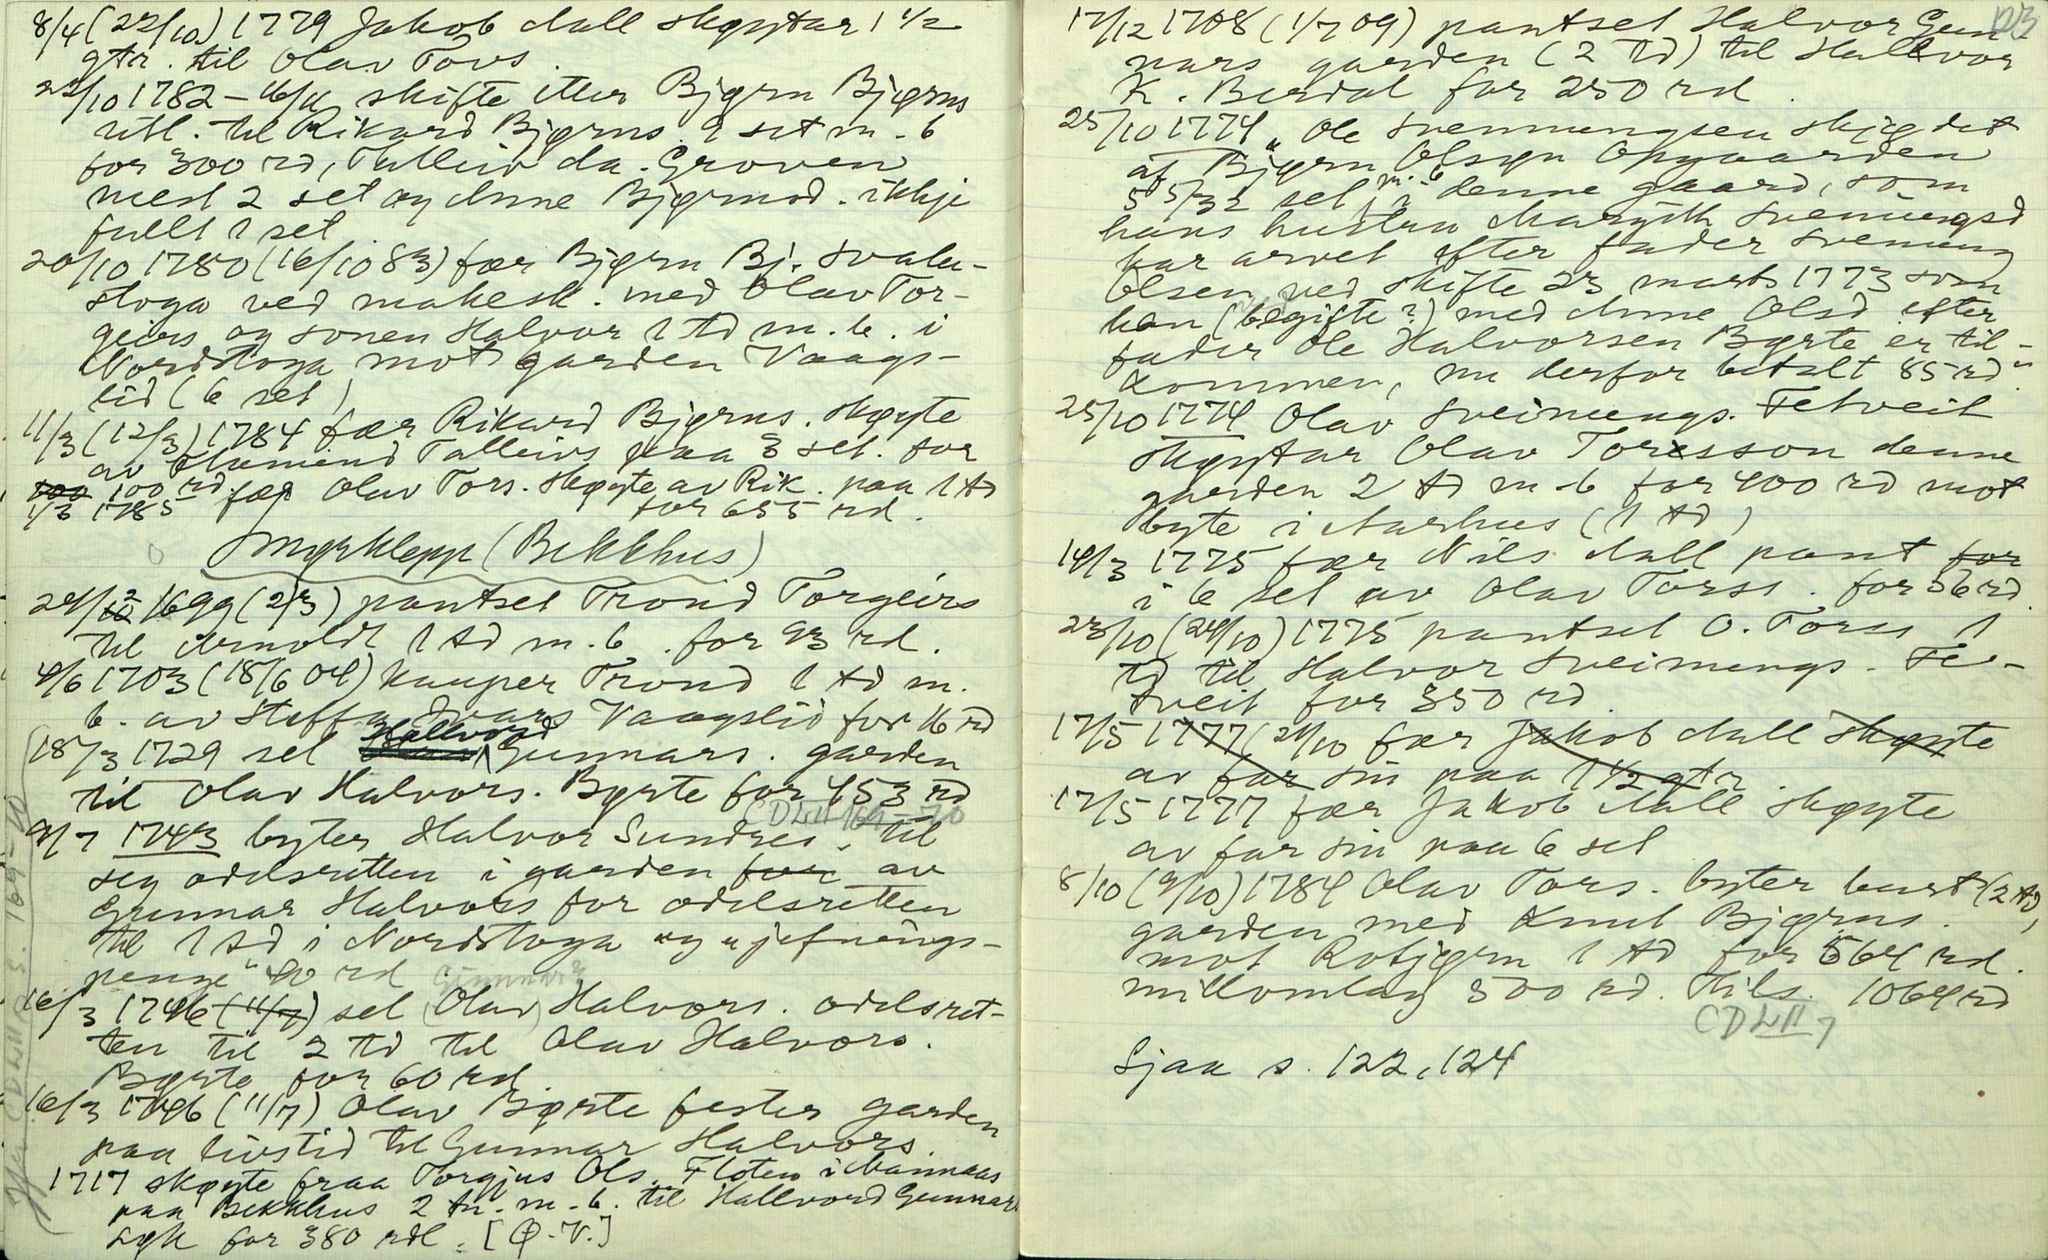 8/4 (22/10) 1779 Jakob Aall skøytar 1 1/2
gtr. til Olav Tovs.
22/10 1782 – 16/11 skifte etter Bjørn Bjørns
utl. til Rikard Bjørns. 9 set m. b
for 300 rd, Talleiv da. Groven
med 2 set og Anne Bjørnsd. ikkje
fullt 1 set
20/10 1780 (16/10 83) fær Bjørn Bj. Svalu-
stoga ved makesk. med Olav Tor-
geirs og sonen Halvor 1 td m. b. i
Nordstoga mot garden Vaags-
lid (6 set)
11/3 (12/3) 1784 fær Rikard Bjørns. skøyte
av Aamund Talleivs paa 3 set. for
100 rd.
1/3 1785 fær Olav Tors. skøyte av Rik. paa 1 td
for 655 rd.
Smyrklepp (Bekkhus)
24/2 1699 (2/3) pantset Trond Torgeirs
til Arnoldt 1 td m. b. for 93 rd.
4/6 1703 (18/6 04) kauper Trond 1 td m.
b. av Steffa Ivars Vaagslid for 16 rd
18/3 1729 sel Hallvord Gunnars. garden
til Olav Halvors. Byrte for 453 rd
CDLII 169-70
9/7 1743 byter Halvor Sundres. til
seg odelsretten i garden for av
Gunnar Halvors for odelsretten
til 1 td i Nordstoga og "jefnings-
penge" 40 rd
Gunnar?
16/3 1746 (11/7) sel (Olav) Halvors. odelsret-
ten til 2 td til Olav Halvors.
Byrte for 60 rd.
16/3 1746 (11/7) Olav Byrte fester garden
paa livstid til Gunnar Halvors.
1717 skøyte fraa Torgjus Ols. Floten i Mannaas
paa Bekkhus 2 tn. m. b. til Hallvord Gunnar
for 380 rdl. [Ø. V.]
CDLII s. 169-70
123
17/12 1708 (1/7 09) pantset Halvor Gun
nars garden (2 td) til Hallvor
K. Berdal for 250 rd.
25/10 1774 "Ole Svenningsen skjødet
af Bjørn Olsøn Opgaarden
5 5/32 set m. b i denne gaard, som
hans hustru Margith Svenningsd
har arvet efter fader Svenning
Olsen ved skifte 23 marts 1773 som
han (begifte?) med Anne Olsd efter
fader Ole Halvorsen Byrte er til-
kommen, nu derfor betalt 85 rd".
25/10 1774 Olav Sveinungs. Fetveit
skøytar Olav Torsson denne
garden 2 td m. b for 400 rd mot
byte i Aarhus (1 td)
14/3 1775 fær Nils Aall pant for
i 6 set av Olav Torss. for 56 rd.
23/10 (24/10) 1775 pantset O. Torss 1
td til Halvor Sveinungs. Fe-
tveit for 350 rd.
17/5 1777 (24/10 fær Jakob Aall skøyte
av far sin paa 1 1/2 gtr
17/5 1777 fær Jakob Aall skøyte
av far sin paa 6 set
8/10 (9/10) 1784 Olav Tors. byter burt (2 td)
garden med Knut Bjørns.
mot Rotjørn 1 td for 564 rd.
millomlag 500 rd. Tils. 1064 rd
CDLII 7
Sjaa s. 122, 124